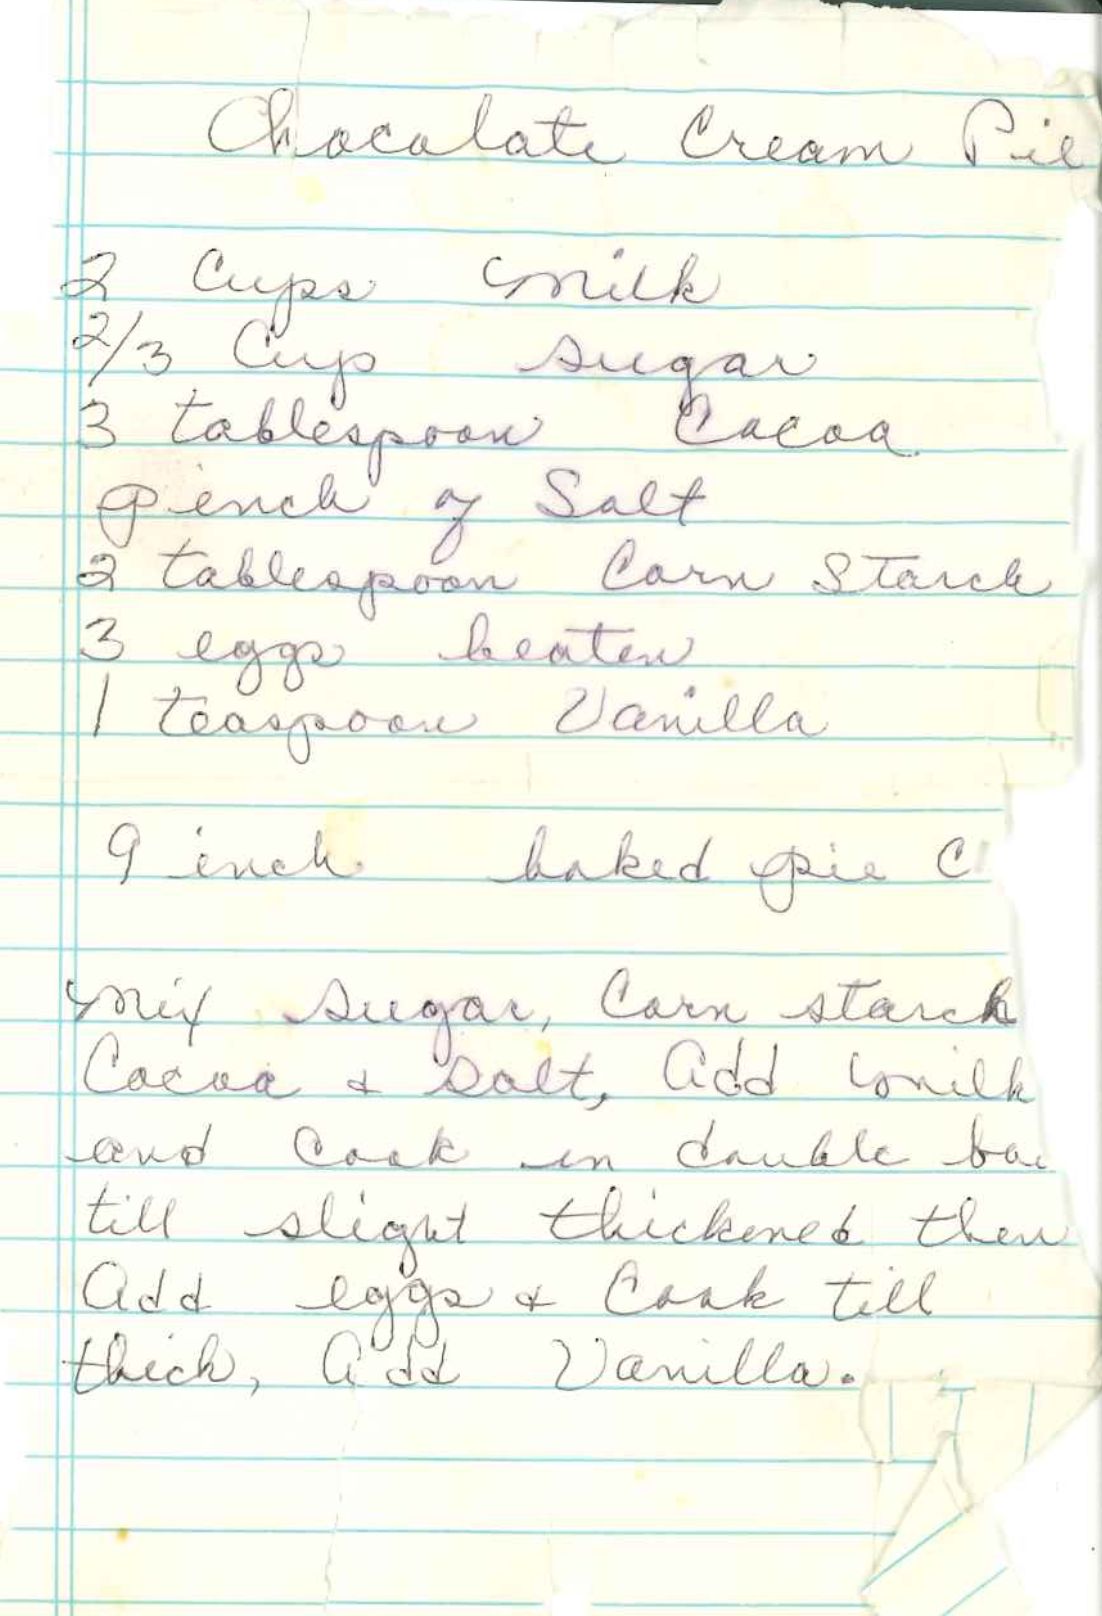 Chocolate Cream Pie
2 Cups milk
2/3 Cup sugar
3 tablespoon Cocoa
pinch of Salt
2 tablespoon Corn Starch
3 eggs beaten
1 teaspoon Vanilla
9 inch baked pie C
Mix sugar, Corn starch
Cocoa & salt, Add milk
and Cook in double boi
till slight thickened then
Add eggs & Cook till
thick, Add Vanilla.